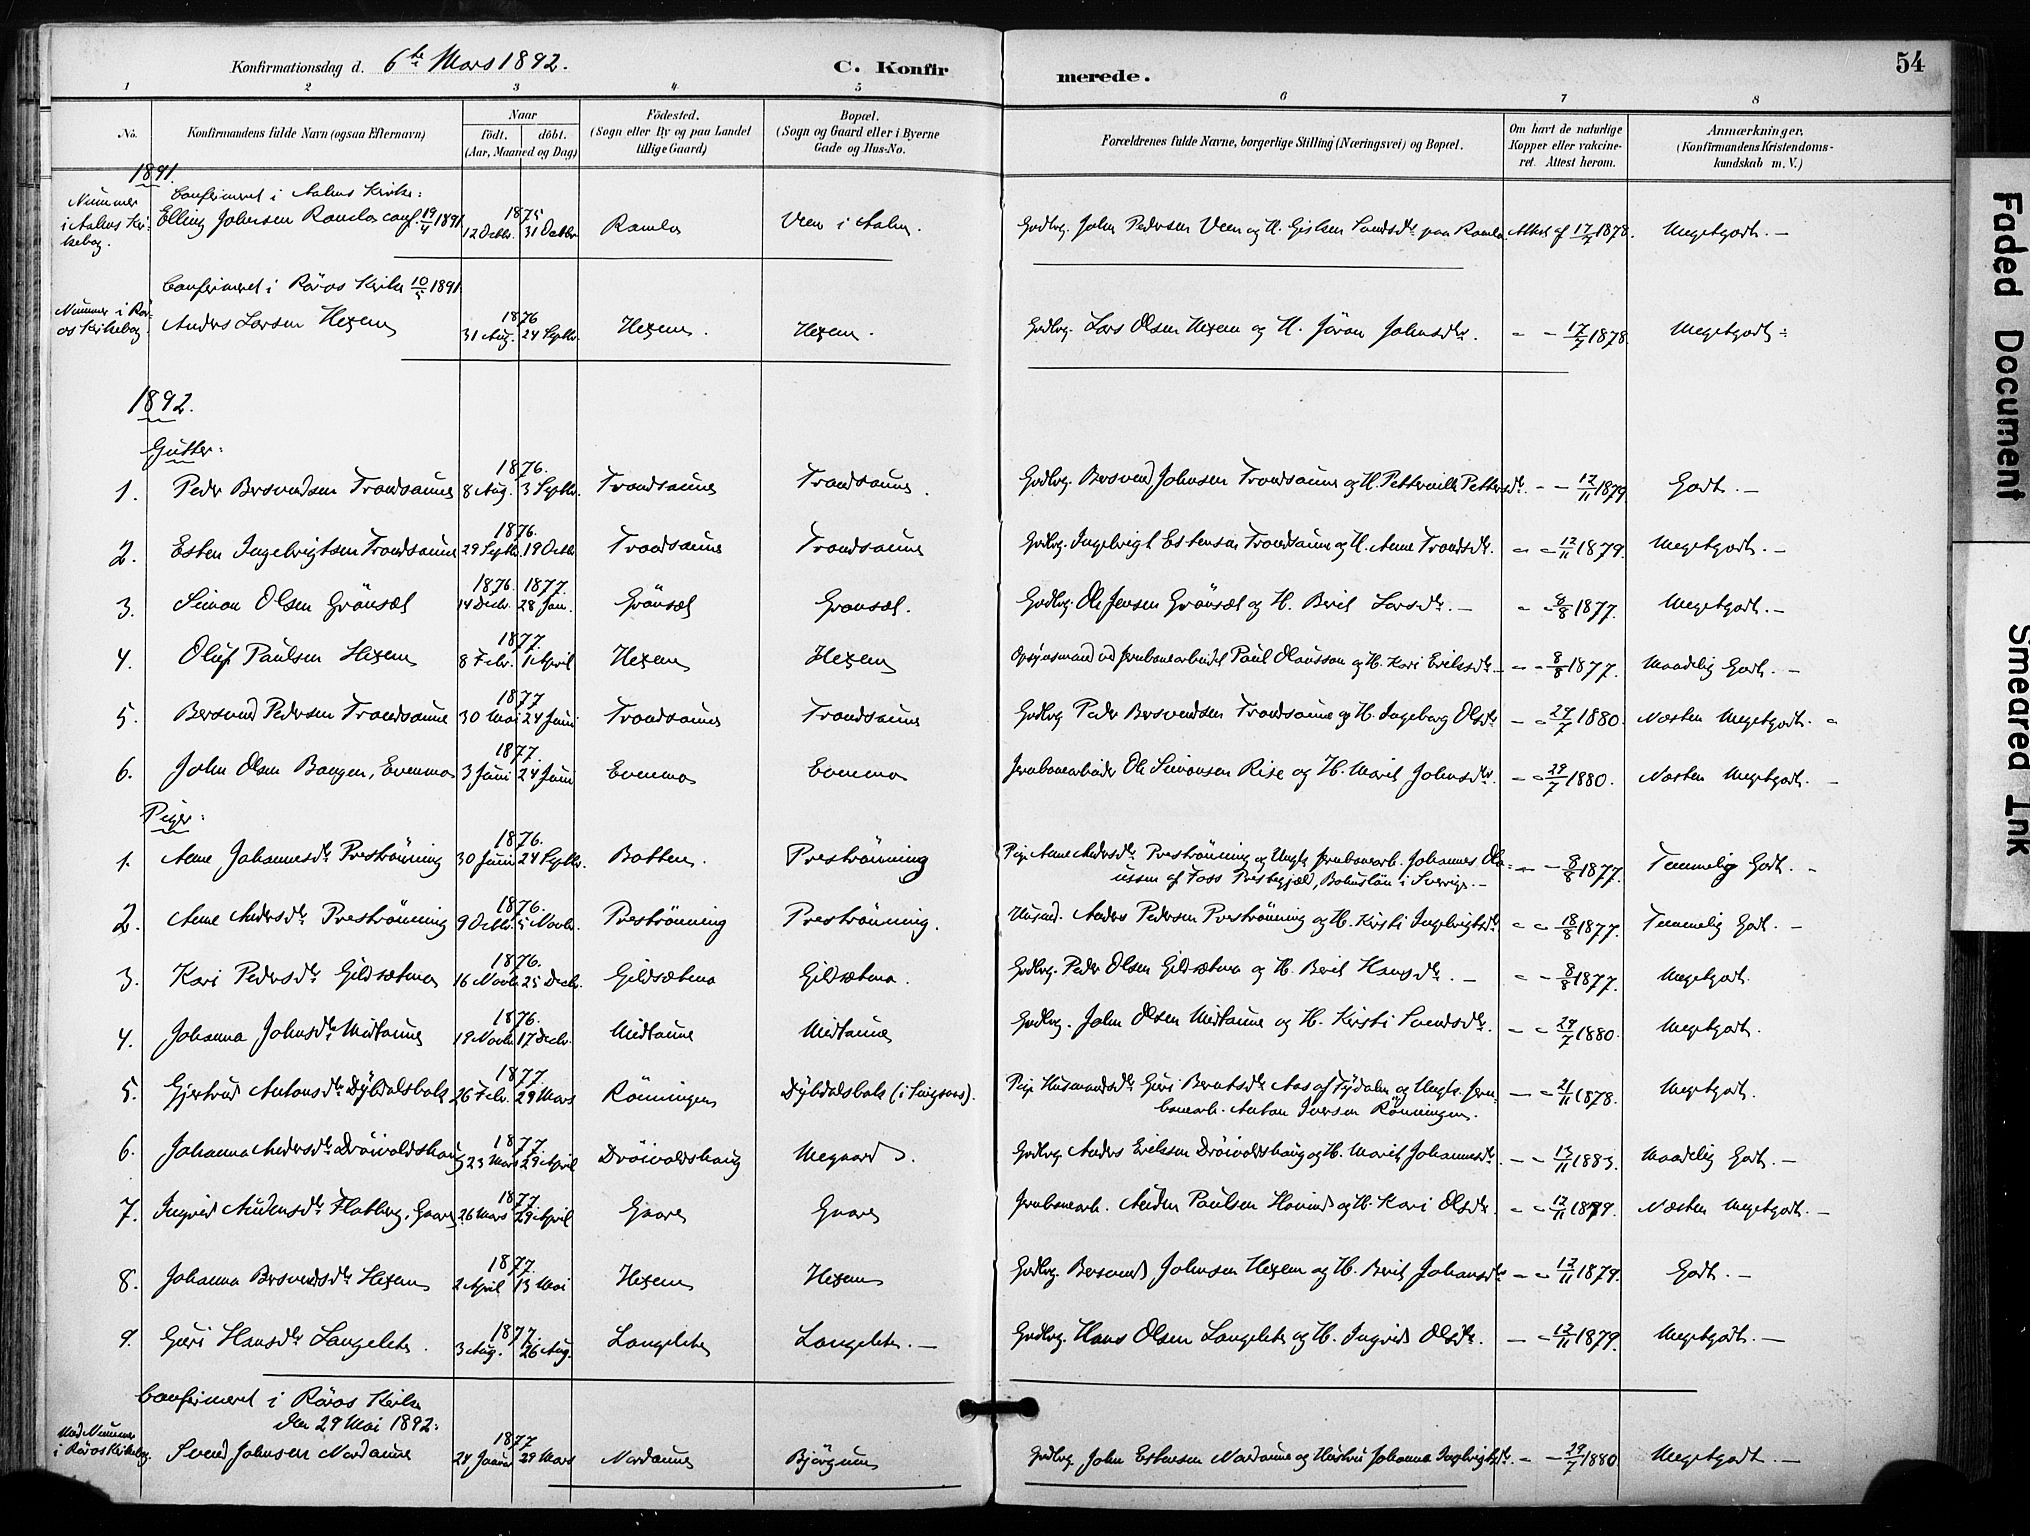 Konfirmationsdag d. 6te Mars 1892.
C. Konfirmerede.
54
1 2 3 4 5 6 7 8
No.
Konfirmandens fulde Navn (ogsaa Efternavn)
Naar
födt. döbt.
(Aar, Maaned og Dag)
Födested.
(Sogn eller By og paa Landet
tillige Gaard)
Bopæl.
(Sogn og Gaard eller i Byerne
Gade og Hus-No.
Forældrenes fulde Navne, borgerlige Stilling (Næringsvei) og Bopæl.
Om havt de naturlige
Kopper eller vakcine-
ret. Attest herom.
Anmærkninger.
(Konfirmandens Kristendoms-
kundskab m. V.)
1891.
Confirmeret i Aalens Kirke:
Nummer i Aalens Kirkebog. Elling Johnsen Ramlo conf. 19/4 1891 1875 12 Octbr. 31 Octbr. Ramlo Veen i Aalen. Gbrkg. John Pedersen Veen og H. Svendsdtr paa Ramlo. Attest af 17/7 1878. Megetgodt. —
Confirmeret i Röros Kirke 10/5 1891
Nummer i Röros Kirkebog. Anders Larsen Hexem 1876 31 Aug. 24 Septbr. Hexem. Hexem. Gbrkg. Lars Olsen Hexem og H. Jöran Johnsdtr. - - 17/7 1878. Megetgodt
1892.
Gutter:
1. Peder Bersvendsen Trondsaune 1876. 8 Aug. 3 Septbr. Trondsaune Trondsaune. Gbrkg. Bersvend Johnsen Trondsaune og H. Petternille Pettersdtr. - - 12/11 1879. Godt. —
2. Esten Ingebrigtsen Trondsaune 1876. 29 Septbr. 19 Octbr. Trondsaune Trondsaune Gbrkg. Ingebrigt Estensen Trondsaune og H. Anne Trondsdtr. - - 12/11 1879. Megetgodt. —
3. Simon Olsen Grönsæt 1876. 1877. 14 Decbr. 28 Jan. Grönsæt Grönsæt. Gbrkg. Ole Jensen Grönsæt og H. Berit Larsdtr. — - - 8/8 1877. Megetgodt. —
4. Oluf Paulsen Hexem 1877. 8 Febr. 1 April Hexem Hexem Opsynsmand ved Jernbanearbeidet Paul Olausson og H. Kari Eriksdtr - - 8/8 1877. Maadelig Godt. —
5. Bersvend Pedersen Trondsaune 1877. 30 Mai 24 Juni Trondsaune Trondsaune Gbrkg Peder Bersvendsen Trondsaune og H. Ingeborg Olsdtr - - 29/7 1880. Næsten Megetgodt. -
6. John Olsen Bangen, Evenmo 1877. 3 Juni 24 Juni Evenmo Evenmo Jernbanearbeider Ole Simonsen Rise og H. Marit Johnsdtr. - - 29/7 1880. Næsten Megetgodt. —
Piger:
1. Anne Johannesdtr Preströnning 1876. 30 Juni 24 Septbr. Botten. Preströnning Pige Anne Andersdtr Preströnning og Ungk. Jernbanearb. Johannes Ola-
ussen af Foss Prestegjæld, Bohuslän i Sverige. — - - 8/8 1877. Temmelig Godt. -
2. Anne Andersdtr Preströnning 1876. 9 Octbr. 5 Novbr. Preströnning Preströnning. Husmd. Anders Pedersen Preströnning og H. Kirsti Ingebrigtsdtr - - 18/8 1877. Temmelig Godt. —
3. Kari Pedersdtr Gildsætmo 1876. 16 Novbr. 25 Decbr. Gildsætmo Gildsætmo. Gbrkg. Peder Olsen Gildsætmo og H. Berit Hansdtr. — - - 8/8 1877. Megetgodt.
4. Johanna Johnsdtr Midtaune 1876. 19 Novbr. 17 Decbr. Midtaune Midtaune Gbrkg. John Olsen Midtaune og H. Kirsti Svendsdtr. - - 29/7 1880. Megetgodt.
5. Gjertrud Antonsdtr Dybdalsbak 1877. 26 Febr. 29 Mars Rönningen Dybdalsbak (i Singsaas). Pige Husmandsdtr Guri Berntsdtr Aas af Tydalen og Ungk. Jern-
banearb. Anton Iversen Rönningen. - - 21/11 1878. Megetgodt.
6. Johanna Andersdtr Dröivoldshaug 1877. 23 Mars 29 April Dröivoldshaug Megaard. Gbrkg Anders Eriksen Dröivoldshaug og H. Marit Johannesdtr. - - 13/11 1883. Maadelig Godt. —
7. Ingrid Audensdtr Flatberg, Gaare 1877. 26 Mars 29 April Gaare Gaare Jernbanearb. Auden Paulsen og H. Kari Olsdtr. - - 12/11 1879. Næsten Megetgodt. —
8. Johanna Bersvendsdtr Hexem 1877. 2 April 13 Mai Hexem Hexem Gbrkg. Bersvend Johnsen Hexem og H. Berit Johansdtr - - 12/11 1879. Godt. —
9. Guri Hansdtr Langelete. 1877. 3 Aug. 26 Aug. Langelete Langelete. — Gbrkg. Hans Olsen Langelete og H. Ingrid Olsdtr. - - 12/11 1879. Megetgodt. —
Confirmeret i Röros Kirke
den 29 Mai 1892:
Med Nummer i Röros Kirkebog. Svend Johnsen Nordaune 1877 24 Januar 29 Mars Nordaune Bjørgum Gbrkg. John Estensen Nordaune og Hustru Johanna Ingebrigtsdtr. - - 29/7 1880. Megetgodt. —
Faded Document
Smeared Ink